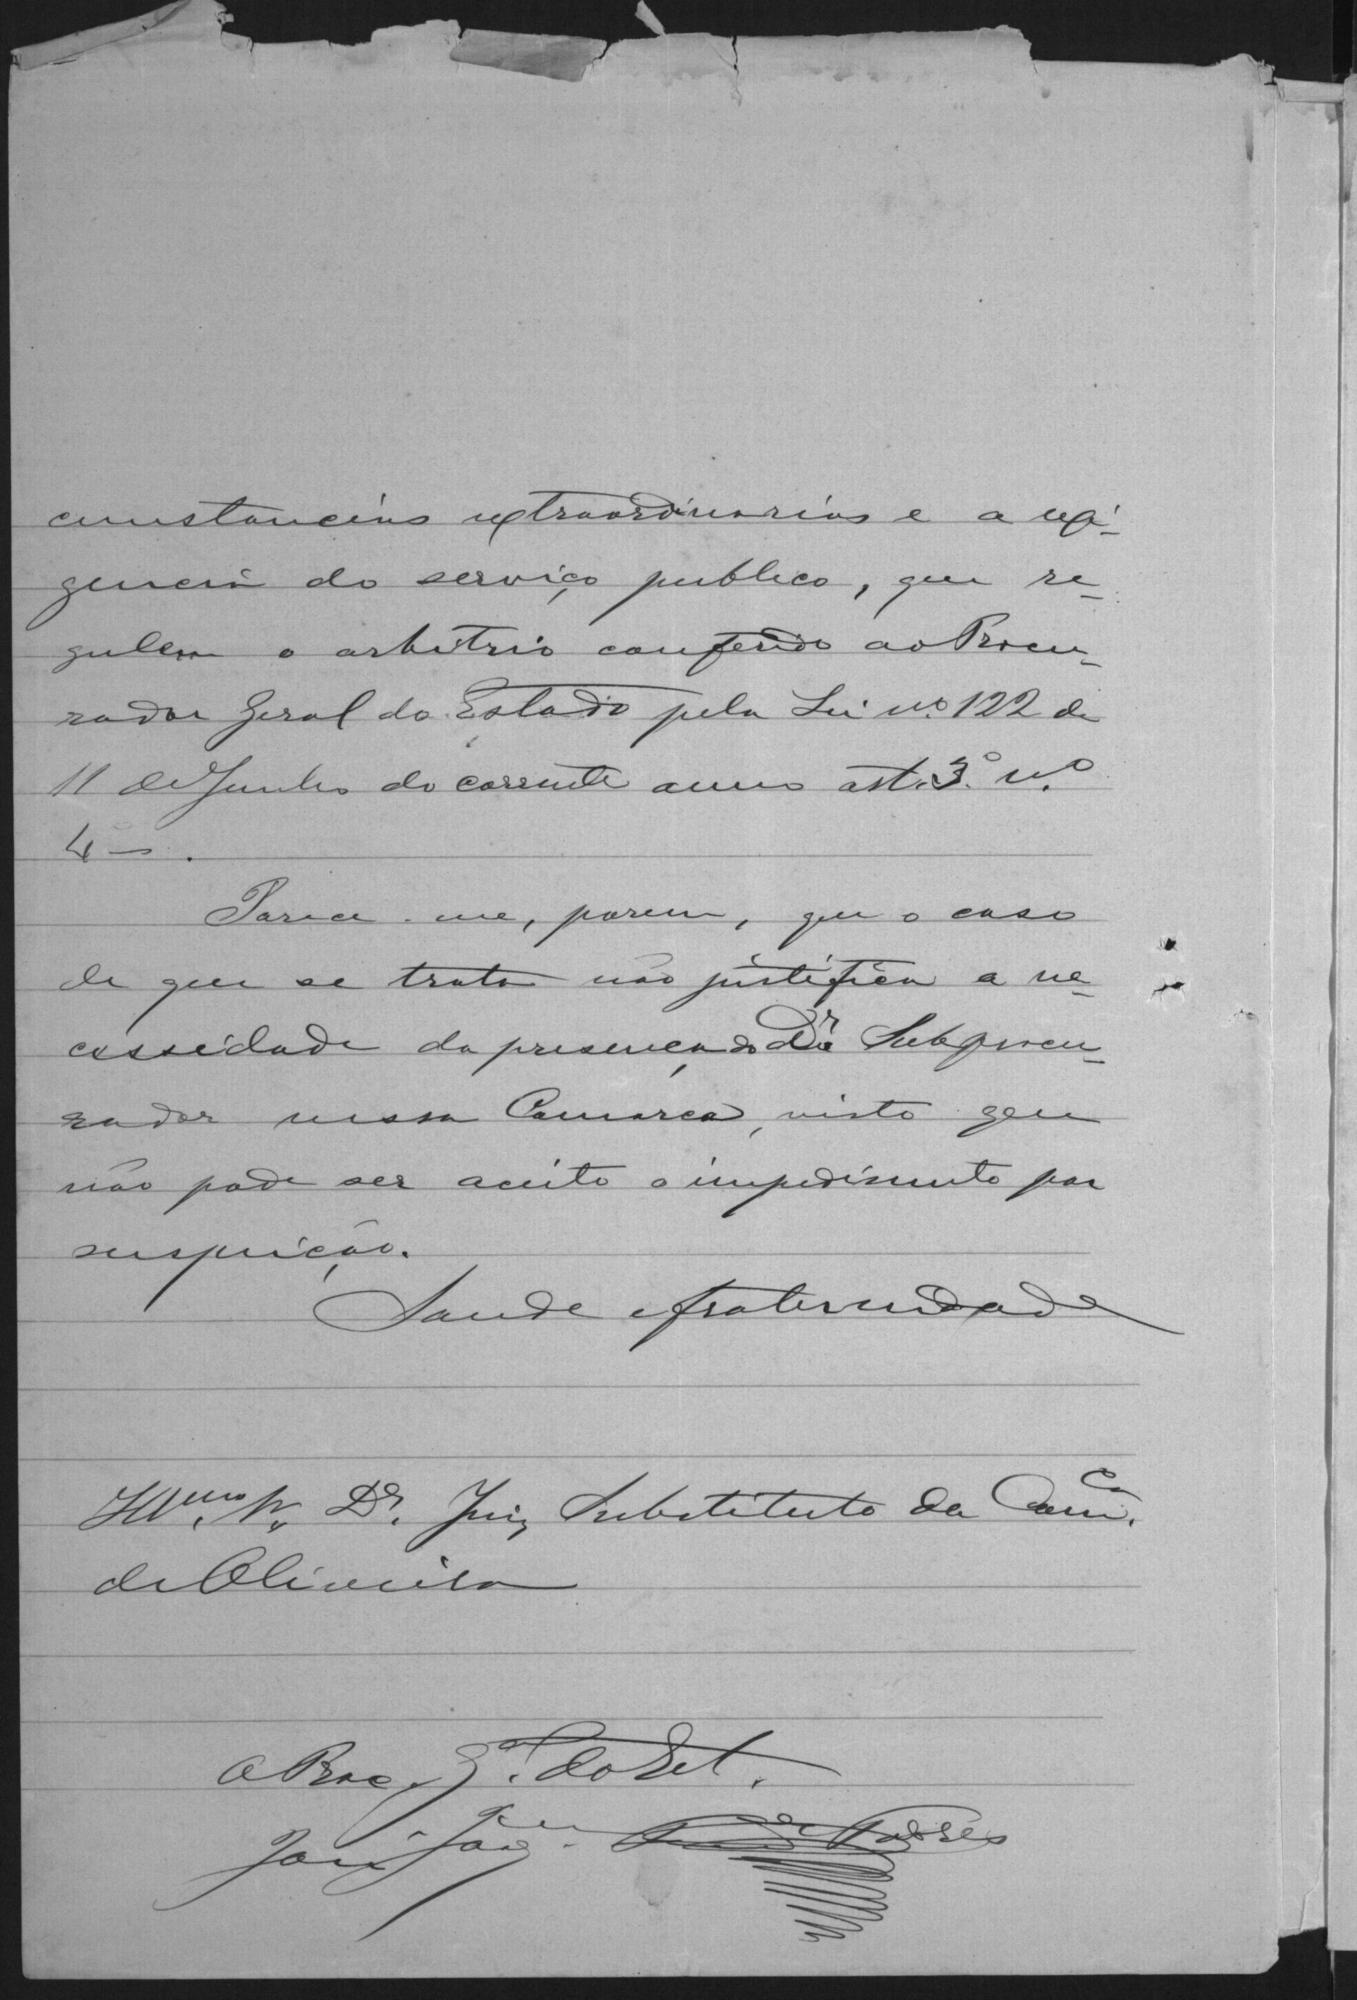 cunstancias extraordinarias e a exi-
gencia do serviço publico, que re-
gulem o arbitrio conferido ao Procu-
rador Geral do Estado pela Lei nº 122 de
11 de Junho do corrente anno art. 3º nº
4 - .
Parece-me, porem, que o caso
de que se trata não justifica a ne-
cessidade da presença do Dr Subprocu-
rador nessa Comarca, visto que
não pode ser aceito o impedimento por
suspeição.
Saude e fraternidade
Illmo. Sr. Dr. Juiz Substituto da Comca.
de Oliveira
O Proc. Gl. do Est.
José Joaqm. de Torres